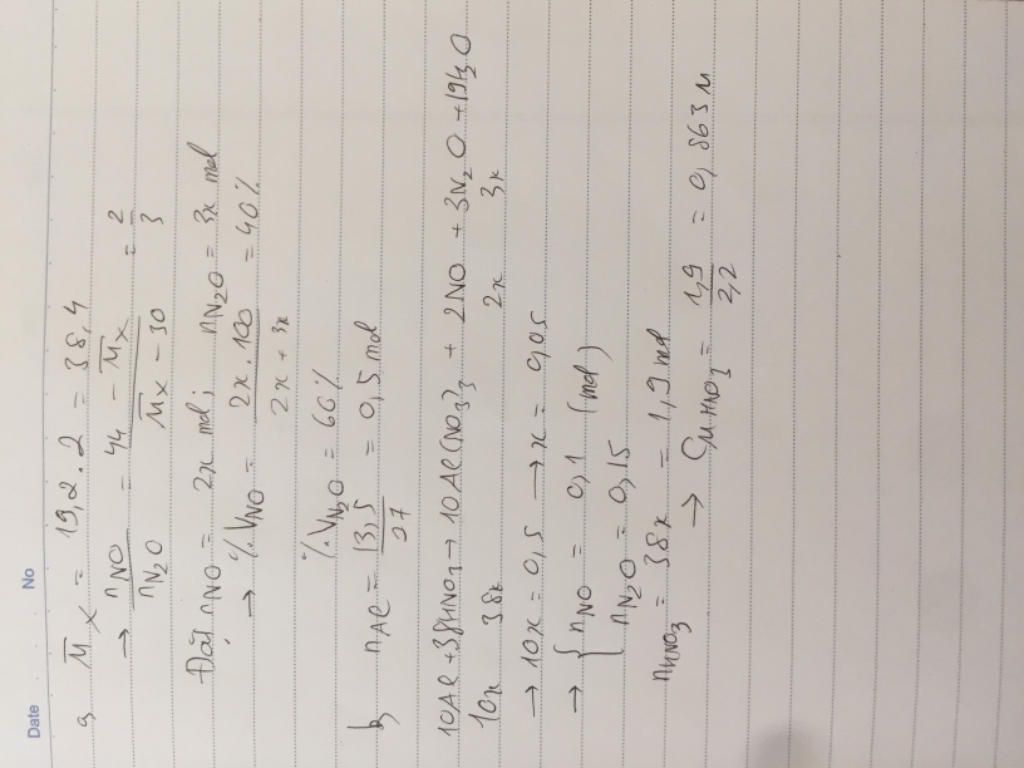 Date No
a, M̅x = 19,2 . 2 = 38,4
→ nNO / nN2O = 44 - M̅x / M̅x - 30 = 2 / 3
Đặt nNO = 2x mol ; nN2O = 3x mol
→ %VNO = 2x . 100 / 2x + 3x = 40%
%VN2O = 60%
b, nAl = 13,5 / 27 = 0,5 mol
10Al + 38HNO3 → 10Al(NO3)3 + 2NO + 3N2O + 19H2O
10x 38x 2x 3x
→ 10x = 0,5 → x = 0,05
→ { nNO = 0,1 (mol)
nN2O = 0,15
nHNO3 = 38x = 1,9 mol
→ CMHNO3 = 1,9 / 2,2 = 0,863M